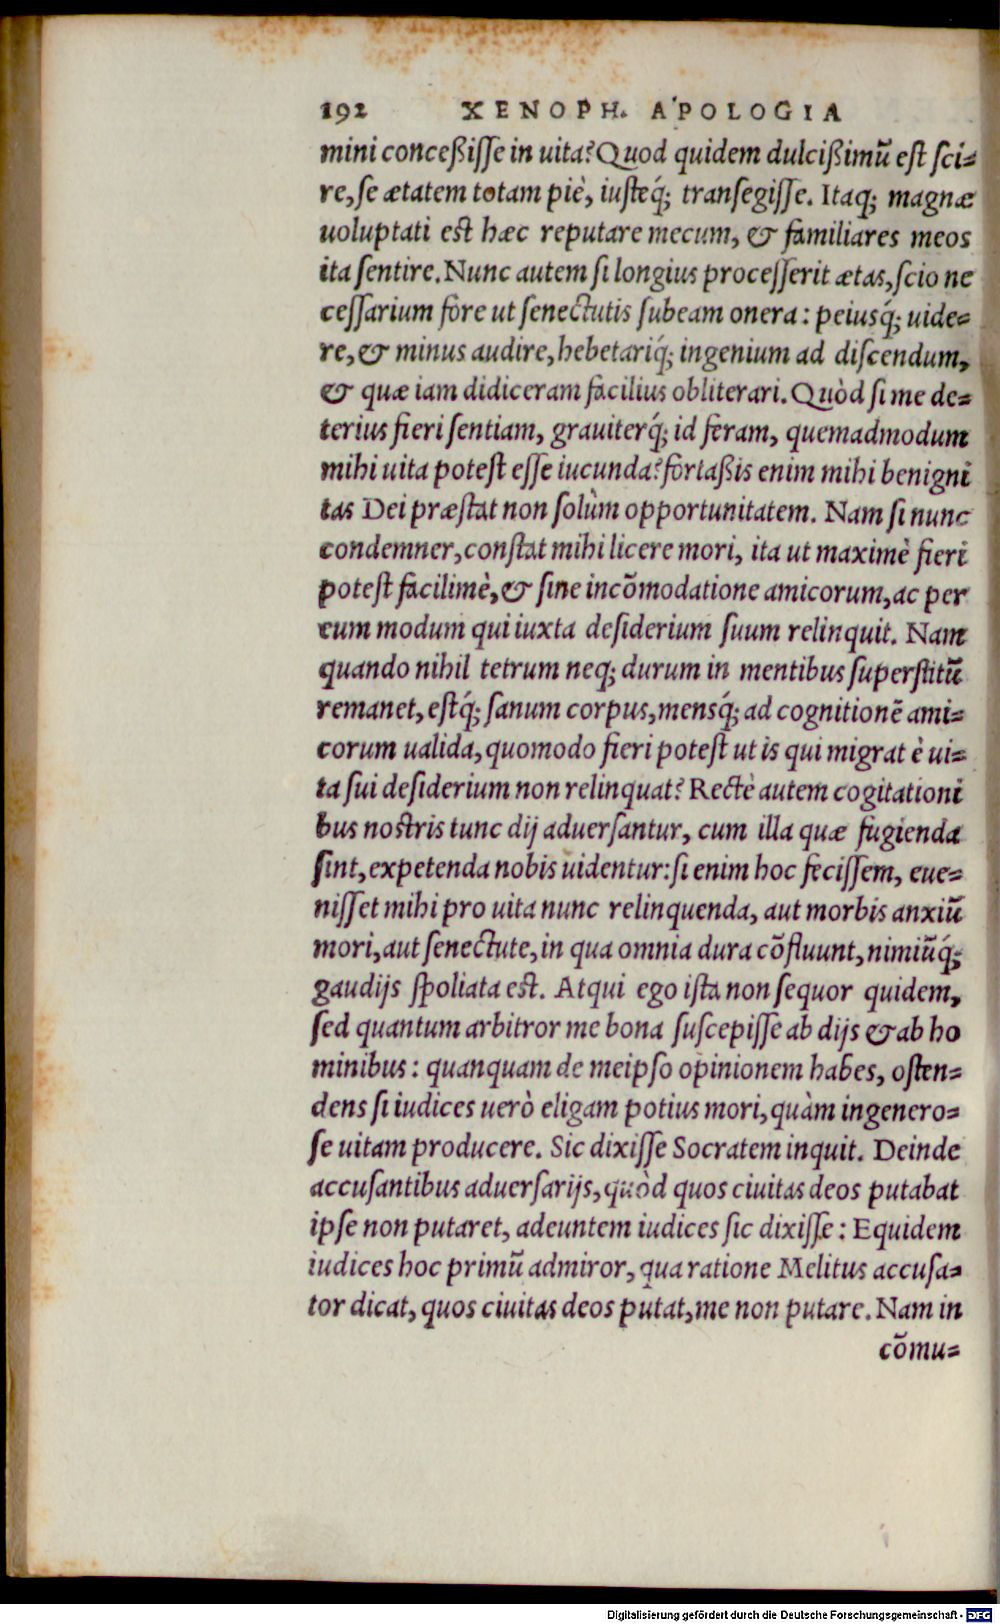 192 XENOPH. APOLOGIA
mini conceßisse in uita? Quod quidem dulcißimũ est sci=
re, se ætatem totam piè, iusteq́; transegisse. Itaq; magnæ
uoluptati est hæc reputare mecum, & familiares meos
ita sentire. Nunc autem si longius processerit ætas, scio ne
cessarium fore ut senectutis subeam onera: peiusq́; uide=
re, & minus audire, hebetariq́; ingenium ad discendum,
& quæ iam didiceram facilius obliterari. Quòd si me de=
terius fieri sentiam, grauiterq́; id feram, quemadmodum
mihi uita potest esse iucunda? fortaßis enim mihi benigni
tas Dei præstat non solùm opportunitatem. Nam si nunc
condemner, constat mihi licere mori, ita ut maximè fieri
potest facilimè, & sine incõmodatione amicorum, ac per
eum modum qui iuxta desiderium suum relinquit. Nam
quando nihil tetrum neq; durum in mentibus superstitũ
remanet, estq́; sanum corpus, mensq́; ad cognitionẽ ami=
corum ualida, quomodo fieri potest ut is qui migrat è ui=
ta sui desiderium non relinquat? Rectè autem cogitationi
bus nostris tunc dij aduersantur, cum illa quæ fugienda
sint, expetenda nobis uidentur: si enim hoc fecissem, eue=
nisset mihi pro uita nunc relinquenda, aut morbis anxiũ
mori, aut senectute, in qua omnia dura cõfluunt, nimiũq́;
gaudijs spoliata est. Atqui ego ista non sequor quidem,
sed quantum arbitror me bona suscepisse ab dijs & ab ho
minibus: quanquam de meipso opinionem habes, osten=
dens si iudices uerò eligam potius mori, quàm ingenero=
se uitam producere. Sic dixisse Socratem inquit. Deinde
accusantibus aduersarijs, quòd quos ciuitas deos putabat
ipse non putaret, adeuntem iudices sic dixisse: Equidem
iudices hoc primũ admiror, qua ratione Melitus accusa=
tor dicat, quos ciuitas deos putat, me non putare. Nam in
cõmu=
Digitalisierung gefördert durch die Deutsche Forschungsgemeinschaft - DFG